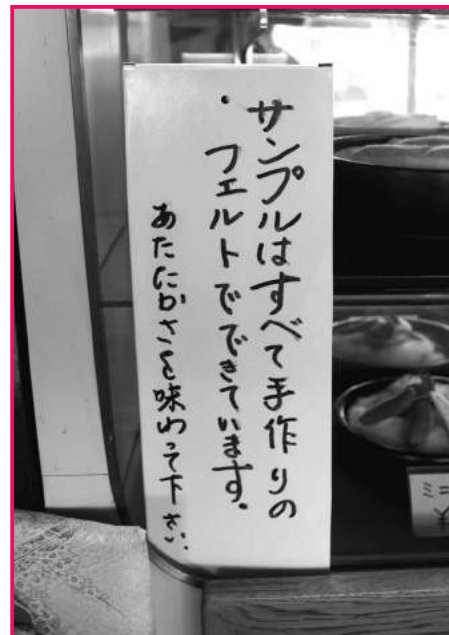 サンプルはすべて手作りの
フェルトでできています。
あたたかさを味わって下さい。
ミニ